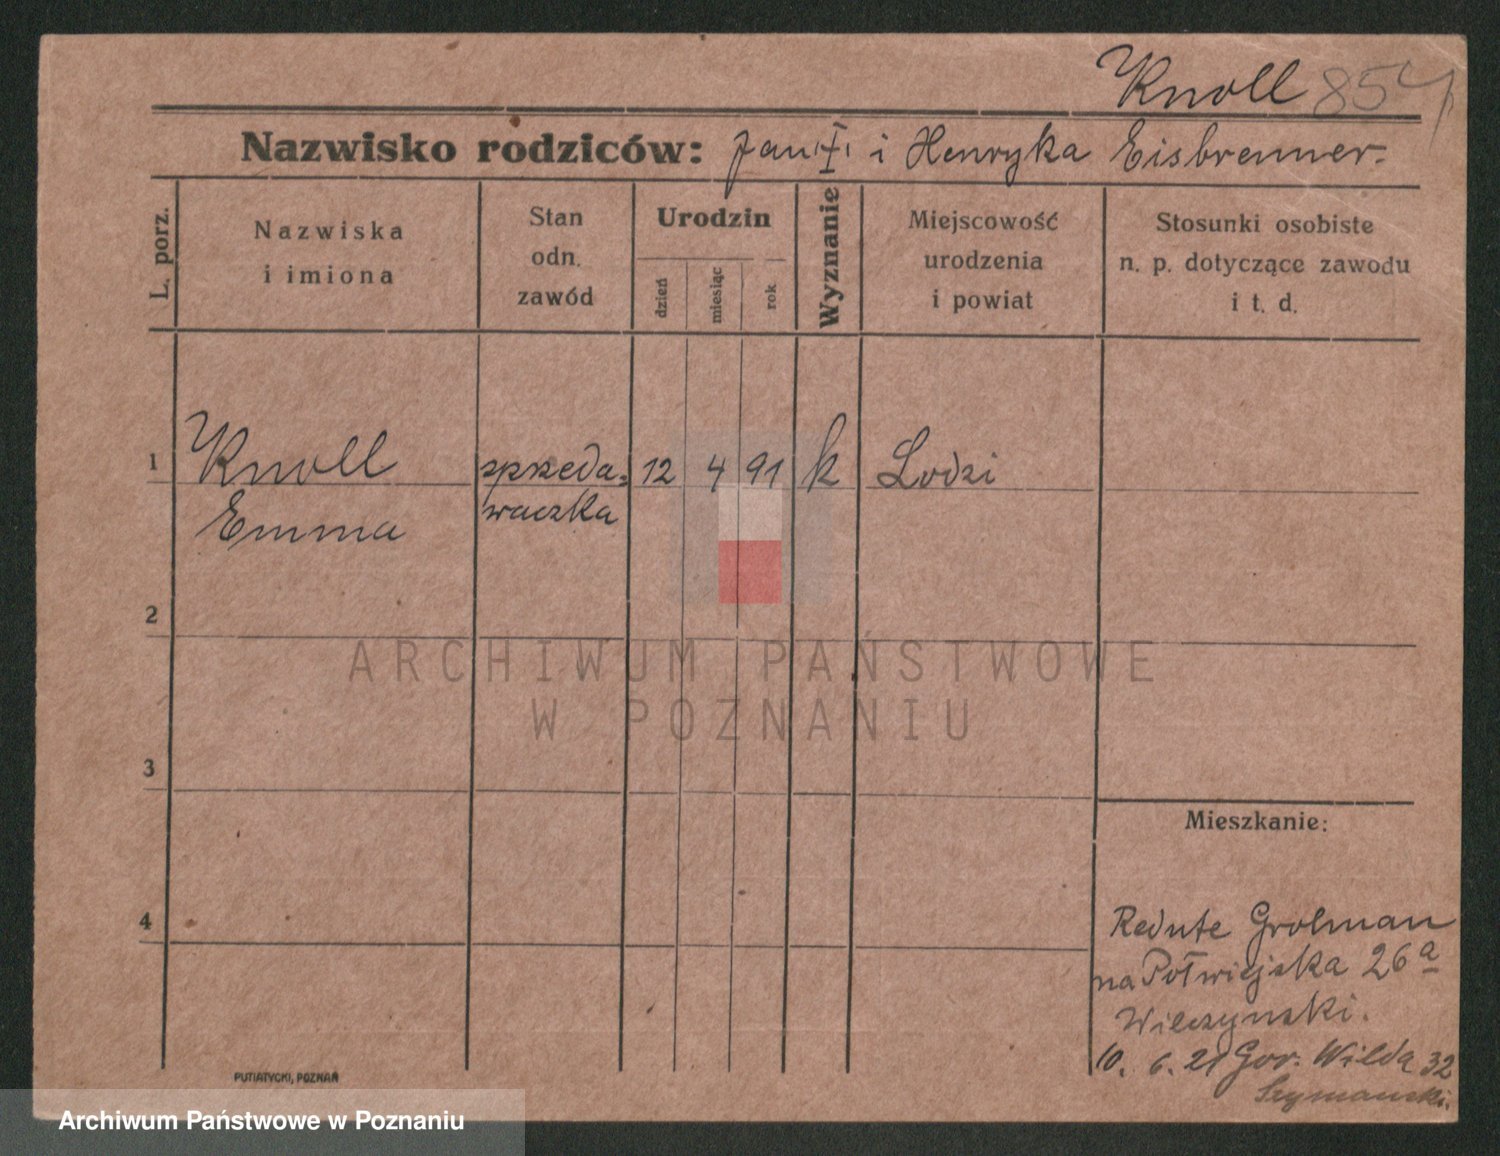 Knoll 854
Nazwisko rodziców: Jan i Henryka Eisbrenner.
L. porz.
Nazwiska
i imiona
Stan
odn.
zawód
Urodzin
dzień
miesiąc
rok
Wyznanie
Miejscowość
urodzenia
i powiat
Stosunki osobiste
n. p. dotyczące zawodu
i t. d.
1 Knoll sprzeda= 12 4 91 k Lodzi
Emma waczka
2
3
4
ARCHIWUM PAŃSTWOWE
W POZNANIU
Mieszkanie:
Redute Grolman
na Półwiejska 26a
Wilczynski.
10. 6. 21 Gor. Wilda 32
Szymanski.
PUTIATYCKI, POZNAŃ
Archiwum Państwowe w Poznaniu